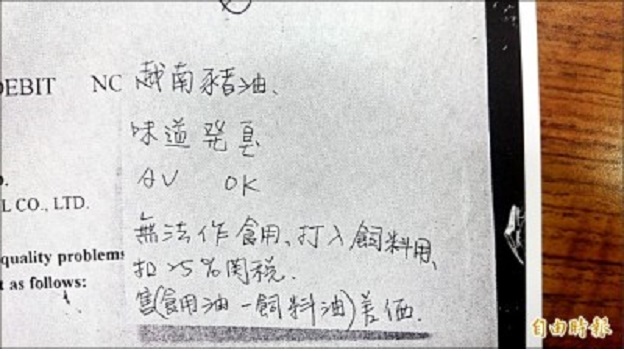 DEBIT NO
越南豬油、
味道発臭
AV OK
L CO., LTD.
無法作食用、打入飼料用、
quality problems
扣25%関税.
t as follows:
害(食用油-飼料油)差価.
自由時報